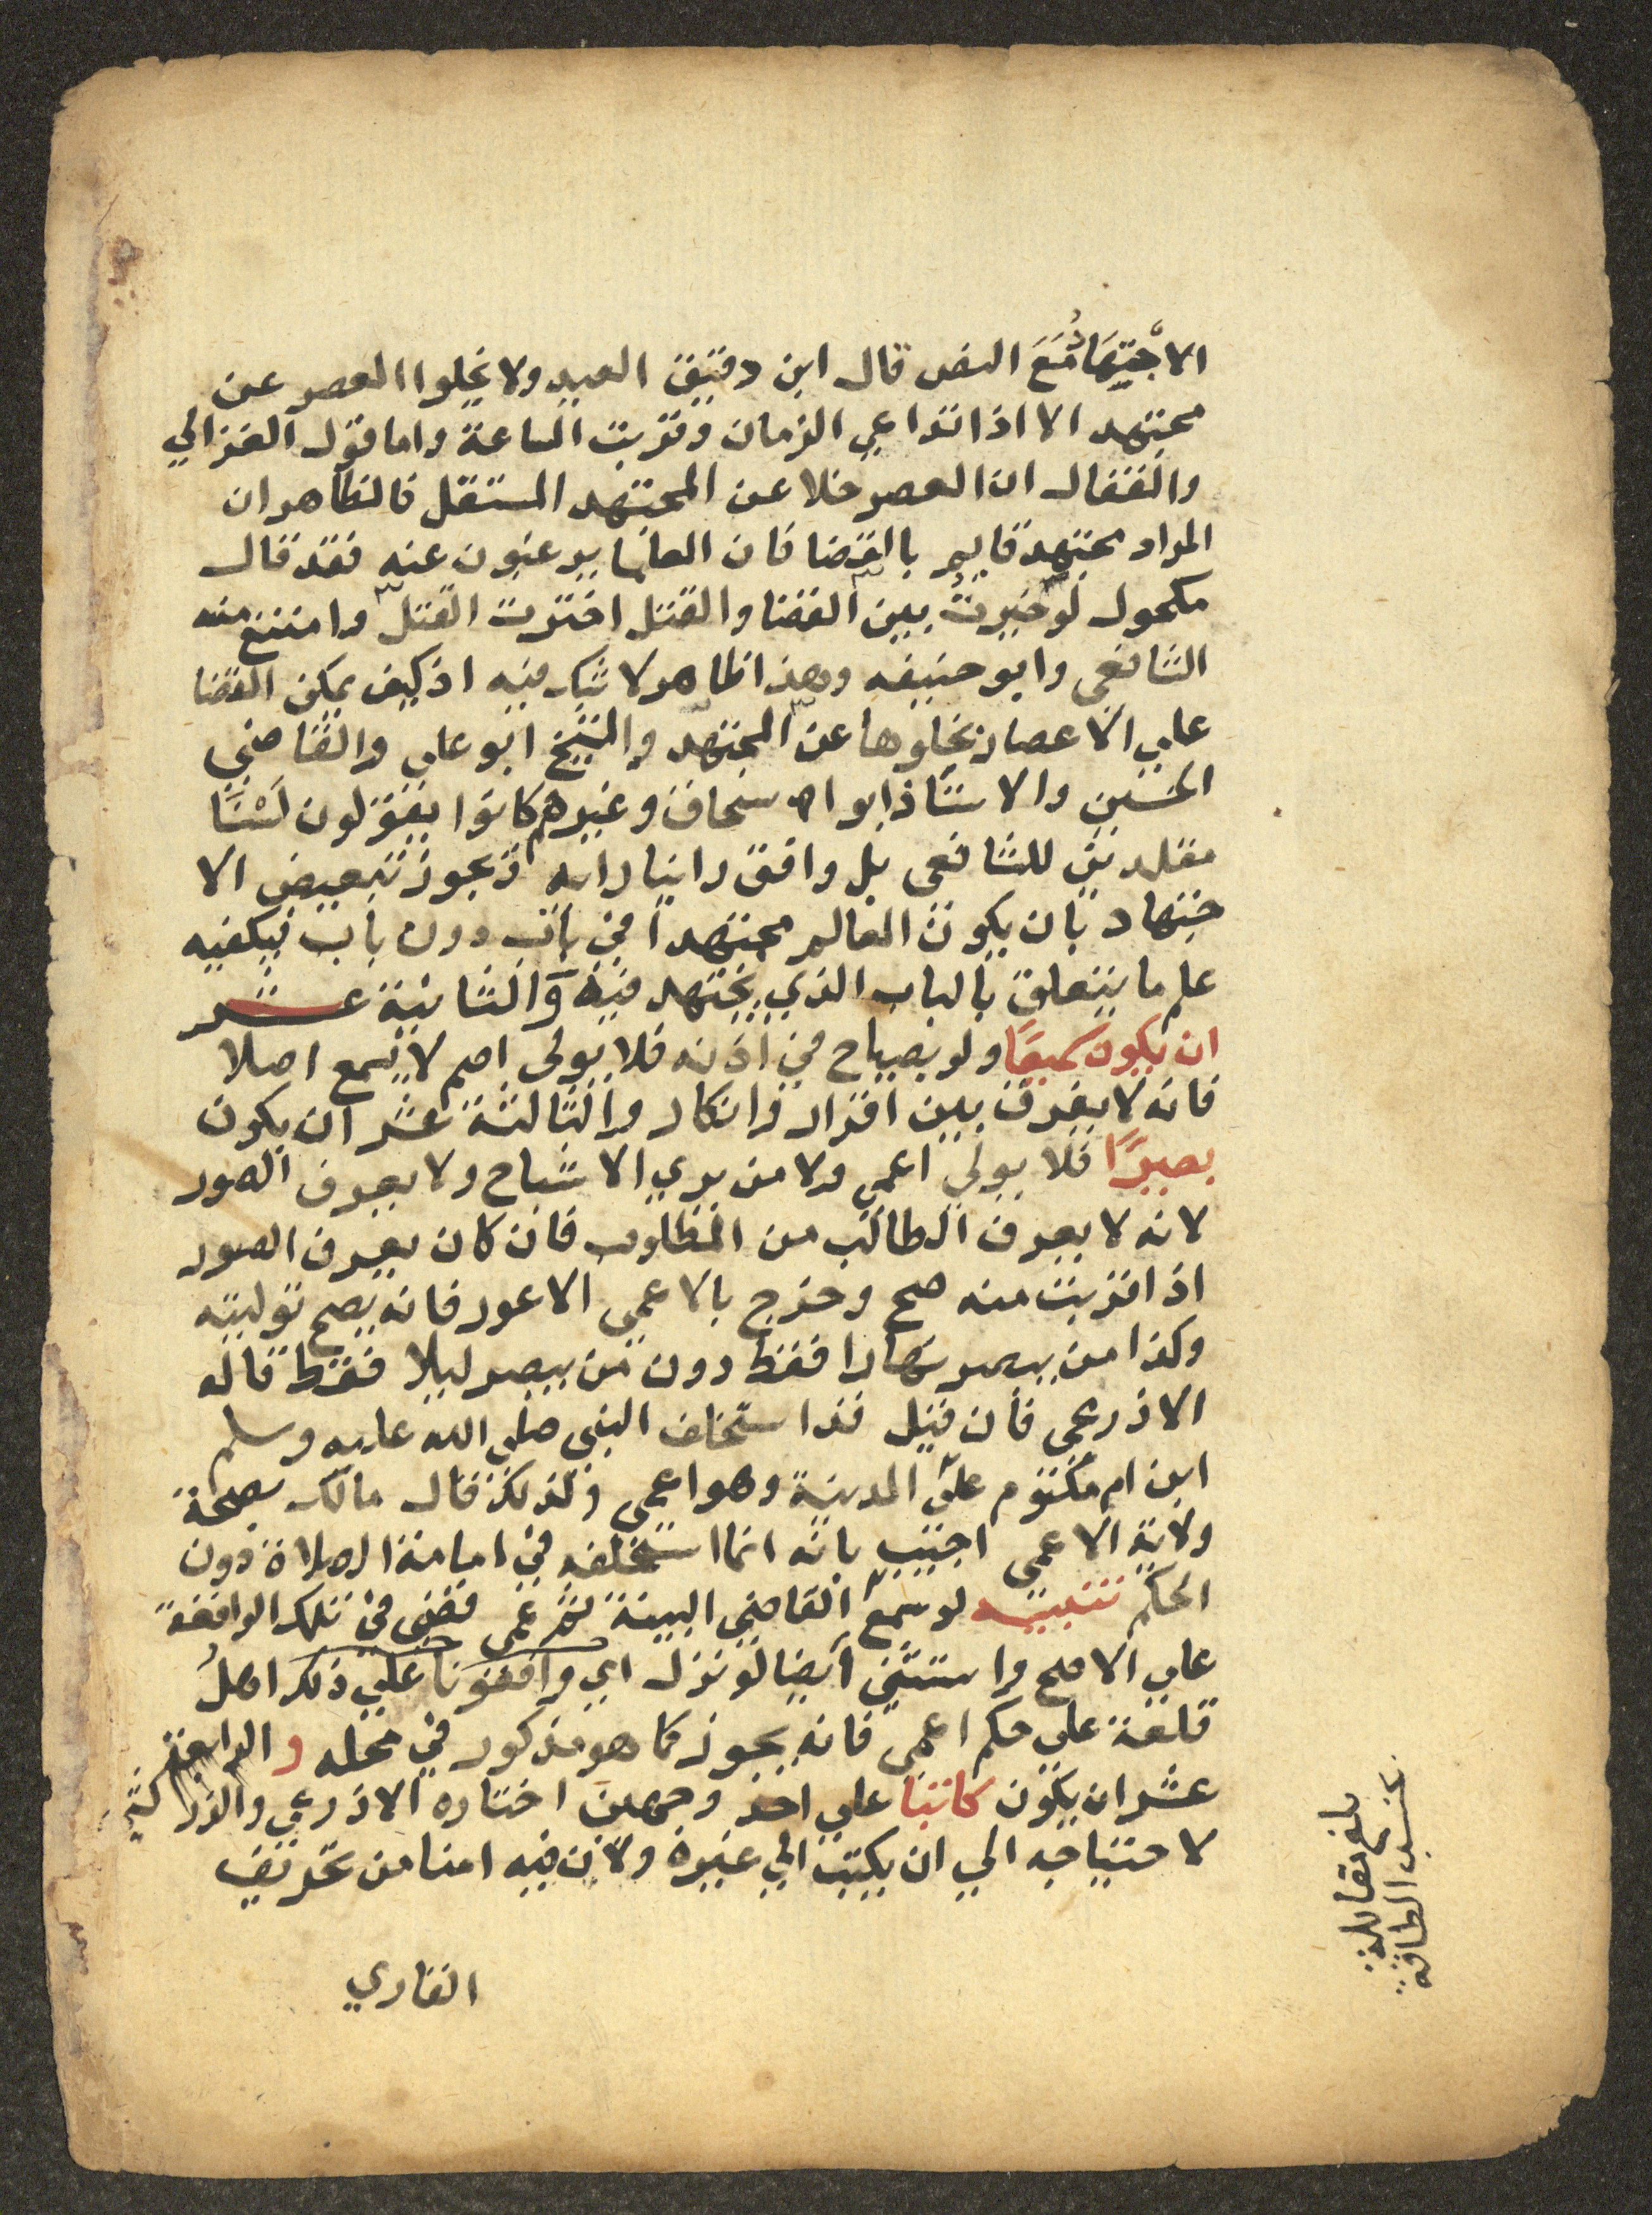 الاجْتِهَادُ مَعَ النص قال ابن دقيق العيد ولا يخلوا العصر عن
مجتهد الا اذا تداعي الزمان وقربت الساعة واما قول الغزالي
والقفال ان العصر خلا عن المجتهد المستقل فالظاهر ان
المراد مجتهد قايم بالقضا فان العلما يرغبون عنه فقد قال
مكحول لو خيرتُ بين القضا والقتل اخترت القتل وامتنع منه
الشافعي وابو حنيفه وهذا ظاهر لا شك فيه اذ كيف يمكن القضا
علي الاعصار بخلوها عن المجتهد والشيخ ابو علي والقاضي
الحسين والاستاذ ابو اسحاق وغيرهم كانوا يقولون لَسْنَا
مقلدين للشافعي بل وافق راينا رايه ويجوز تبعيض الا
جتهاد بان يكون العالم مجتهدا في باب دون باب فيكفيه
علم ما يتعلق بالباب الذي يجتهد فيه والثانية عشر
ان يكون سميعًا ولو بصياح في اذنه فلا يولى اصم لا يسمع اصلا
فانه لا يفرق بين اقرار وانكار والثالثة عشر ان يكون
بصيرًا فلا يولي اعمي ولا من يري الاشباح ولا يعرف الصور
لانه لا يعرف الطالب من المطلوب فان كان يعرف الصور
اذا قربت منه صح وخرج بالاعمي الاعور فانه يصح توليته
وكذا من يبصر نهارا فقط دون من يبصر ليلا فقط قاله
الاذرعي فان قيل قد استخلف النبي صلي الله عليه وسلم
ابن ام مكتوم علي المدينة وهو اعمي ولذلك قال مالك بصحة
ولاية الاعمي اجيب بانه انما استخلفه في امامة الصلاة دون
الحكم تنبيه لو سمع القاضي البينة ثم عمي قضى في تلك الواقعة
علي الاصح واستثني ايضا لو نزل اي وافقونا علي ذلك اهلُ
قلعة علي حكم اعمي فانه يجوز كما هو مذكور في محله والرابعة
عشر ان يكون كاتبا علي احد وجهين اختاره الاذرعي والزركشي
لاحتياجه الي ان يكتب الي غيره ولان فيه امنا من تحريف
القاري
بلغ مقابلة
بحسب الطاقة